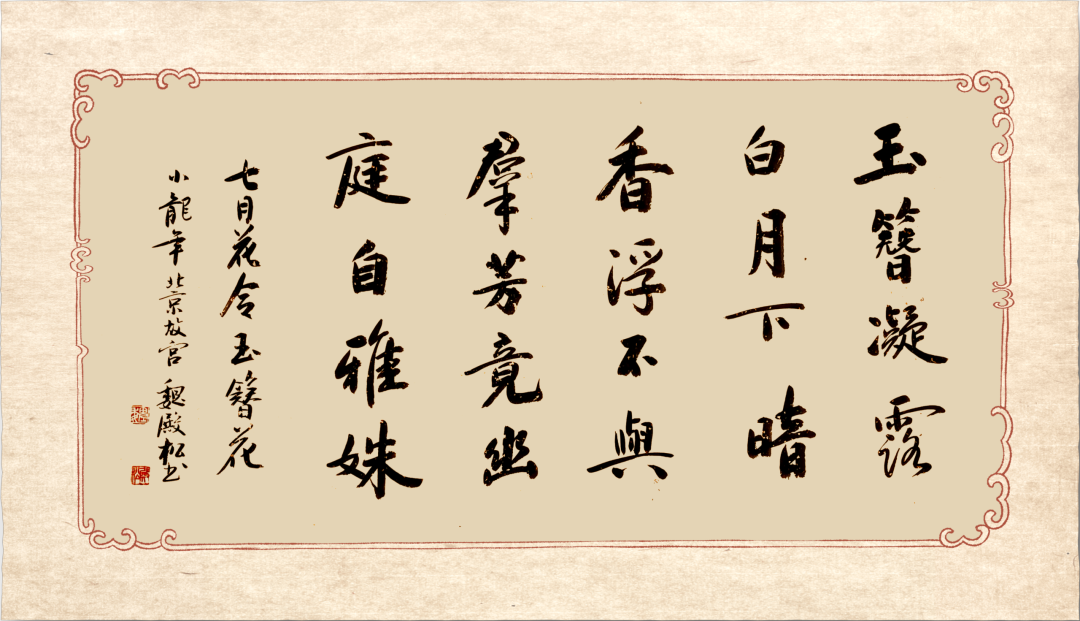 玉簪凝露
白月下暗
香浮不與
羣芳竟幽
庭自雅姝
七月花令玉簪花
小龍年北京故宮魏殿松书